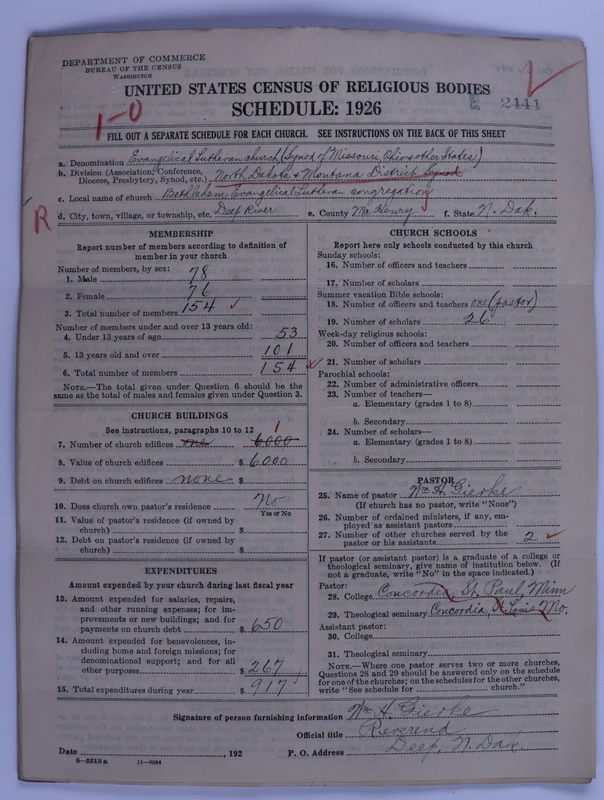 DEPARTMENT OF COMMERCE
BUREAU OF THE CENSUS
WASHINGTON
UNITED STATES CENSUS OF RELIGIOUS BODIES
SCHEDULE: 1926
2441
1-0
FILL OUT A SEPARATE SCHEDULE FOR EACH CHURCH. SEE INSTRUCTIONS ON THE BACK OF THIS SHEET
a. Denomination Evangelical Lutheran church (Synod of Missouri Ohio & other States)
b. Division (Association, Conference, Diocese, Presbytery, Synod, etc.) North Dakota & Montana District Synod
c. Local name of church Bethlehem Evangelical Lutheran congregation
R
d. City, town, village, or township, etc. Deep River e. County Mc Henry f. State N. Dak.
MEMBERSHIP
Report number of members according to definition of member in your church
Number of members, by sex:
1. Male 78
2. Female 76
3. Total number of members 154
Number of members under and over 13 years old:
4. Under 13 years of age 53
5. 13 years old and over 101
6. Total number of members 154
NOTE.—The total given under Question 6 should be the same as the total of males and females given under Question 3.
CHURCH BUILDINGS
See instructions, paragraphs 10 to 12
7. Number of church edifices one 6000 1
8. Value of church edifices $ 6000
9. Debt on church edifices none $
10. Does church own pastor's residence No
Yes or No
11. Value of pastor's residence (if owned by church) $
12. Debt on pastor's residence (if owned by church) $
EXPENDITURES
Amount expended by your church during last fiscal year
13. Amount expended for salaries, repairs, and other running expenses; for improvements or new buildings; and for payments on church debt $ 650
14. Amount expended for benevolences, including home and foreign missions; for denominational support; and for all other purposes $ 267
15. Total expenditures during year $ 917
CHURCH SCHOOLS
Report here only schools conducted by this church
Sunday schools:
16. Number of officers and teachers
17. Number of scholars
Summer vacation Bible schools:
18. Number of officers and teachers one (pastor)
19. Number of scholars 26
Week-day religious schools:
20. Number of officers and teachers
21. Number of scholars
Parochial schools:
22. Number of administrative officers
23. Number of teachers—
a. Elementary (grades 1 to 8)
b. Secondary
24. Number of scholars—
a. Elementary (grades 1 to 8)
b. Secondary
PASTOR
25. Name of pastor Wm. H. Gierke
(If church has no pastor, write "None")
26. Number of ordained ministers, if any, employed as assistant pastors
27. Number of other churches served by the pastor or his assistants 2
If pastor (or assistant pastor) is a graduate of a college or theological seminary, give name of institution below. (If not a graduate, write "No" in the space indicated.)
Pastor:
28. College Concordia, St. Paul, Minn
29. Theological seminary Concordia, St. Louis Mo.
Assistant pastor:
30. College
31. Theological seminary
NOTE.—Where one pastor serves two or more churches, Questions 28 and 29 should be answered only on the schedule for one of the churches; on the schedules for the other churches, write "See schedule for church."
Signature of person furnishing information Wm. H. Gierke
Official title Reverend
Date , 192 P. O. Address Deep, N. Dak.
8-5513 a 11-9054